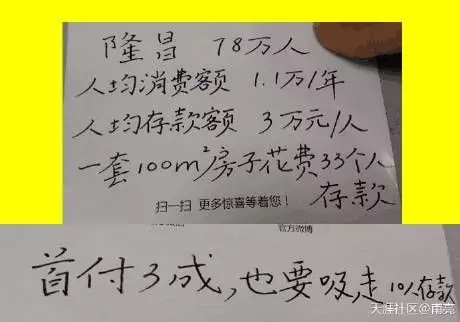 隆昌 78万人
人均消费额 1.1万/年
人均存款额 3万元/人
一套100m²房子花费33个人
存款
扫一扫 更多惊喜等着您!
官方微博
首付3成,也要吸走10人存款
天涯社区@甫亮